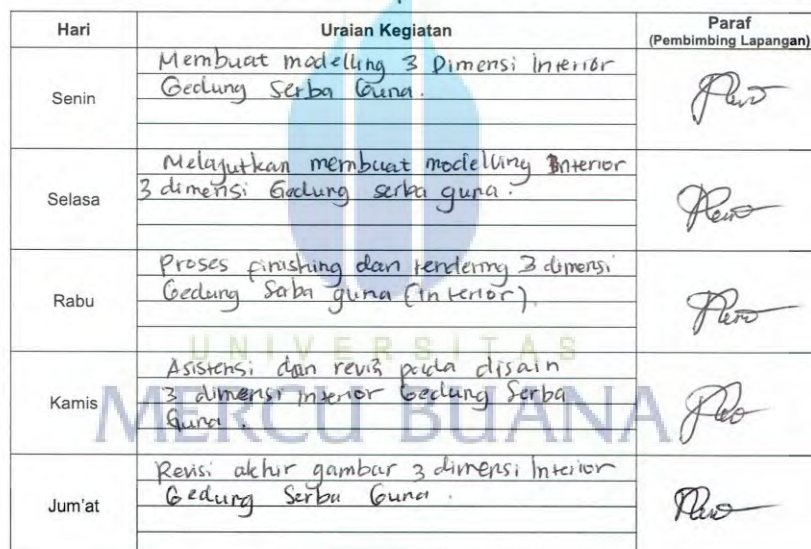 Hari Uraian Kegiatan Paraf
(Pembimbing Lapangan)
Senin
Membuat modelling 3 Dimensi interior
Gedung Serba Guna.
Selasa
Melajutkan membuat modelling Interior
3 dimensi Gedung serba guna.
Rabu
Proses finishing dan rendering 3 dimensi
Gedung Serba guna (interior).
UNIVERSITAS
Kamis
Asistensi dan revisi pada disain
3 dimensi interior Gedung Serba
Guna.
MERCU BUANA
Jum'at
Revisi akhir gambar 3 dimensi Interior
Gedung Serba Guna.